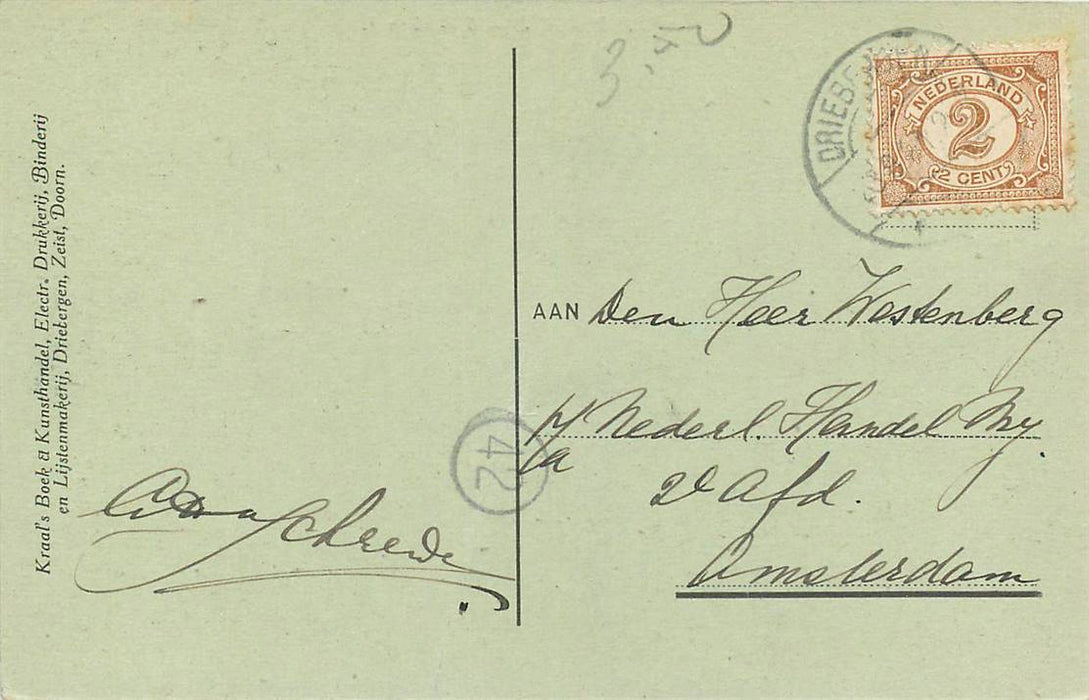 Kraal's Boek & Kunsthandel, Electr. Drukkerij, Binderij
en Lijstenmakerij, Driebergen, Zeist, Doorn.
3,50
DRIEBERGEN
NEDERLAND
2
2 CENT
AAN Den Heer Westenberg
p/a Nederl. Handel My.
2e Afd.
Amsterdam
42